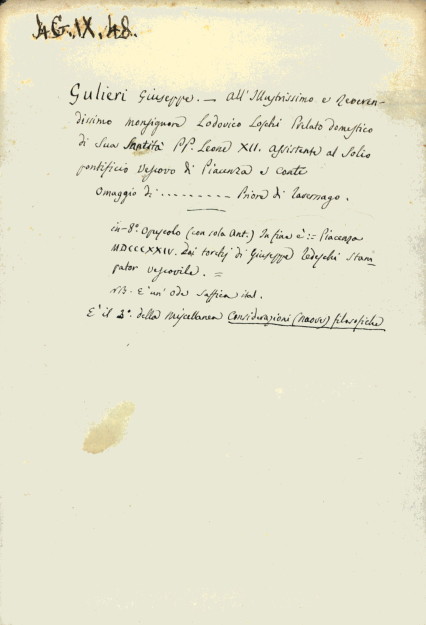 4G.IX.48.
Gulieri Giuseppe. — All'Illustrissimo e Reveren-
dissimo Monsignore Lodovico Loschi Prelato domestico
di Sua Santità PP. Leone XII. assistente al Solio
pontificio Vescovo di Piacenza e Conte
Omaggio di ......... Priore di Taversago.
in-8°. Opuscolo (con sola Ant.) In fine è := Piacenza
MDCCCXXIV. Dai torchj di Giuseppe Tedeschi Stam-
pator vescovile. =
NB. E' un' ode saffica ital.
E' il 3°. della Miscellanea Considerazioni (nuove) filosofiche